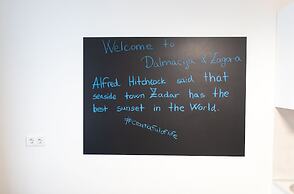 Welcome to
Dalmacija & Zagora
Alfred Hitchcock said that
seaside town Zadar has the
best sunset in the World.